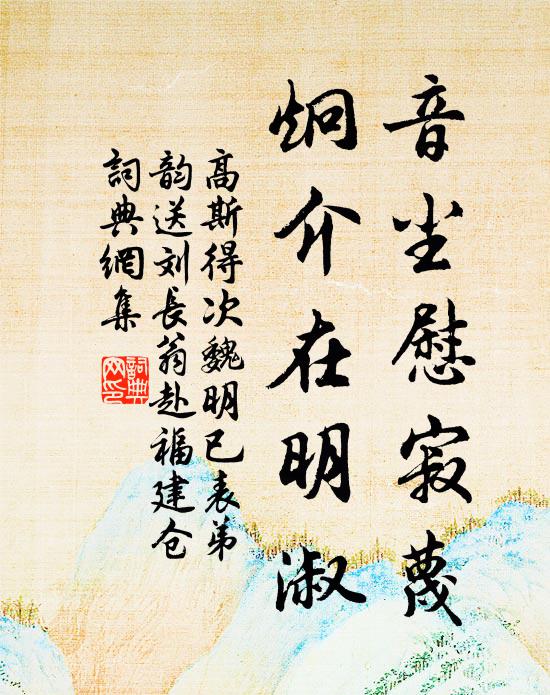 音尘慰寂蔑
炯介在明淑
高斯得次魏明已表弟
韵送刘长翁赴福建仓
詞典網集
詞典
网印